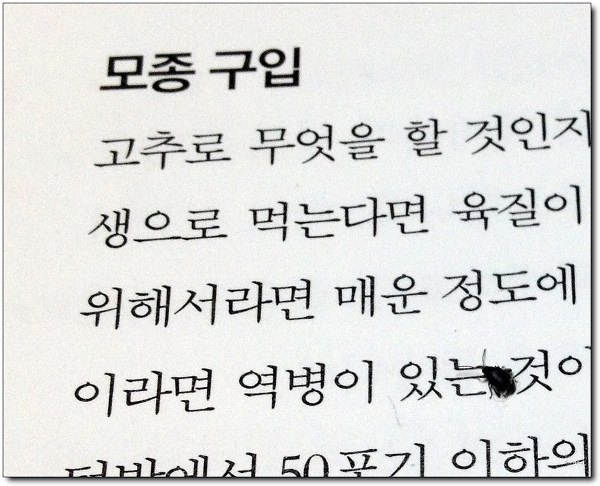 모종 구입
고추로 무엇을 할 것인지
생으로 먹는다면 육질이
위해서라면 매운 정도에
이라면 역병이 있는 것이
텃밭에서 50포기 이하의